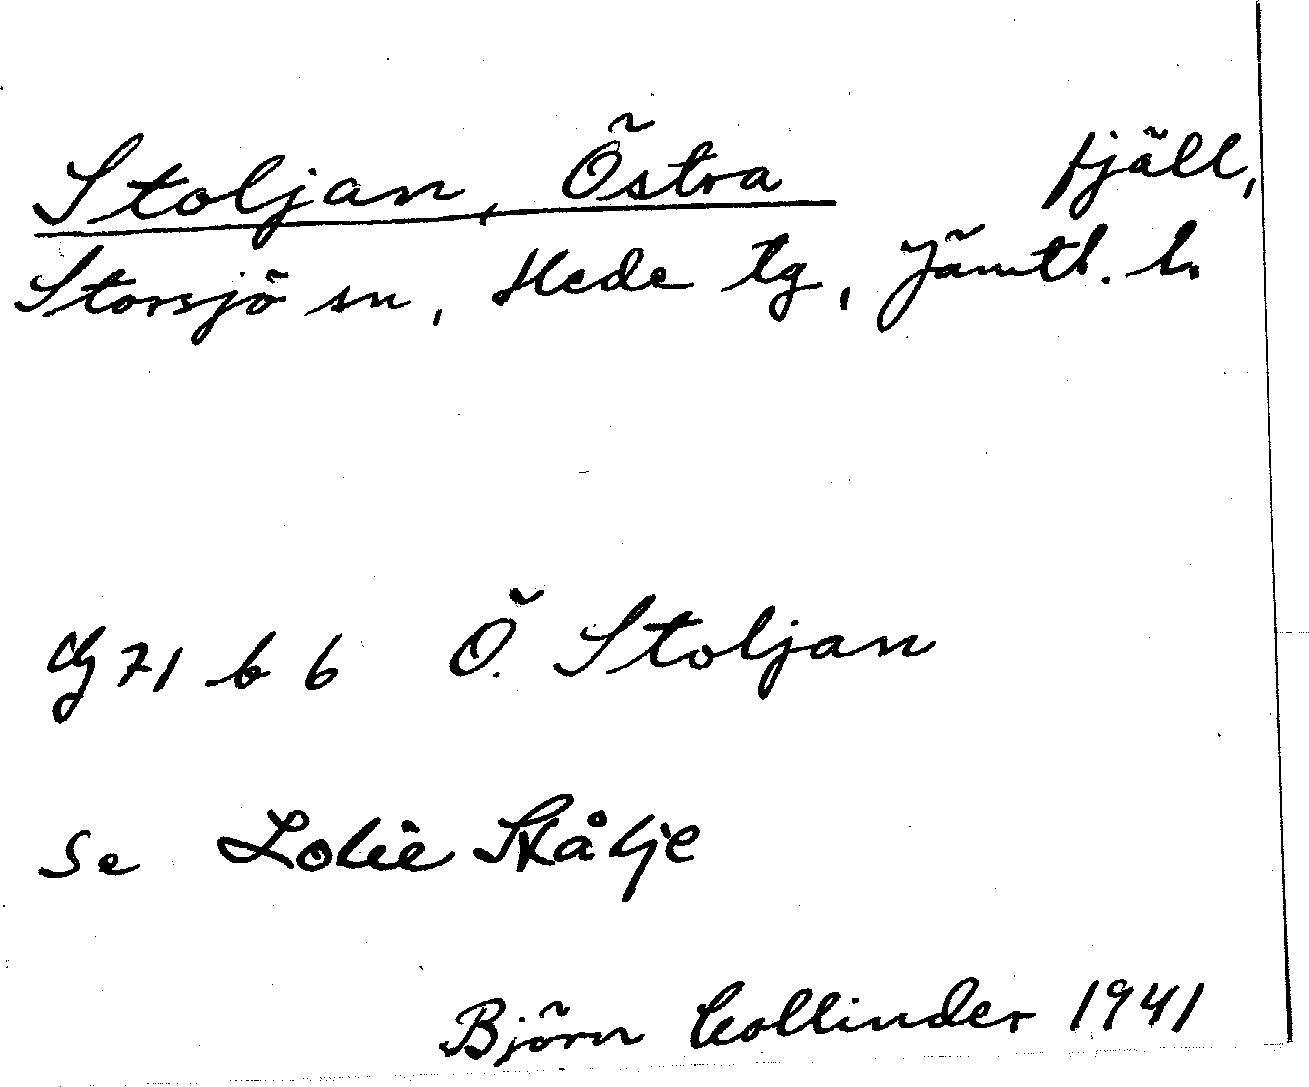 Stoljan, Östra fjäll,
Storsjö sn, Hede tg, Jämtl. l.
dg 71 b 6 Ö. Stoljan
se Lolie Skålje
Björn Collinder 1941